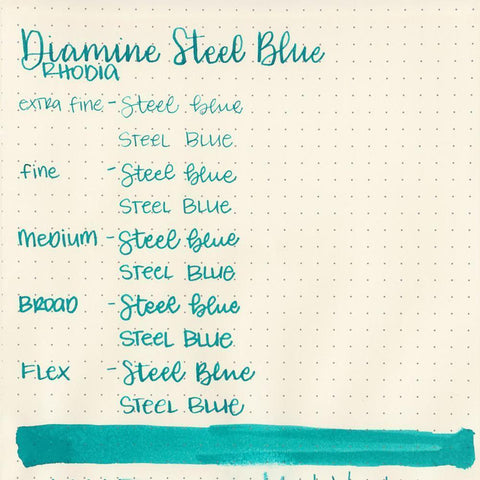 Diamine Steel Blue
RHODIA
extra fine - Steel blue
STEEL BLUE.
fine - Steel blue
STEEL BLUE.
Medium - Steel blue
STEEL BLUE
BROAD - Steel blue
STEEL BLUE.
FLEX - Steel Blue
STEEL BLUE